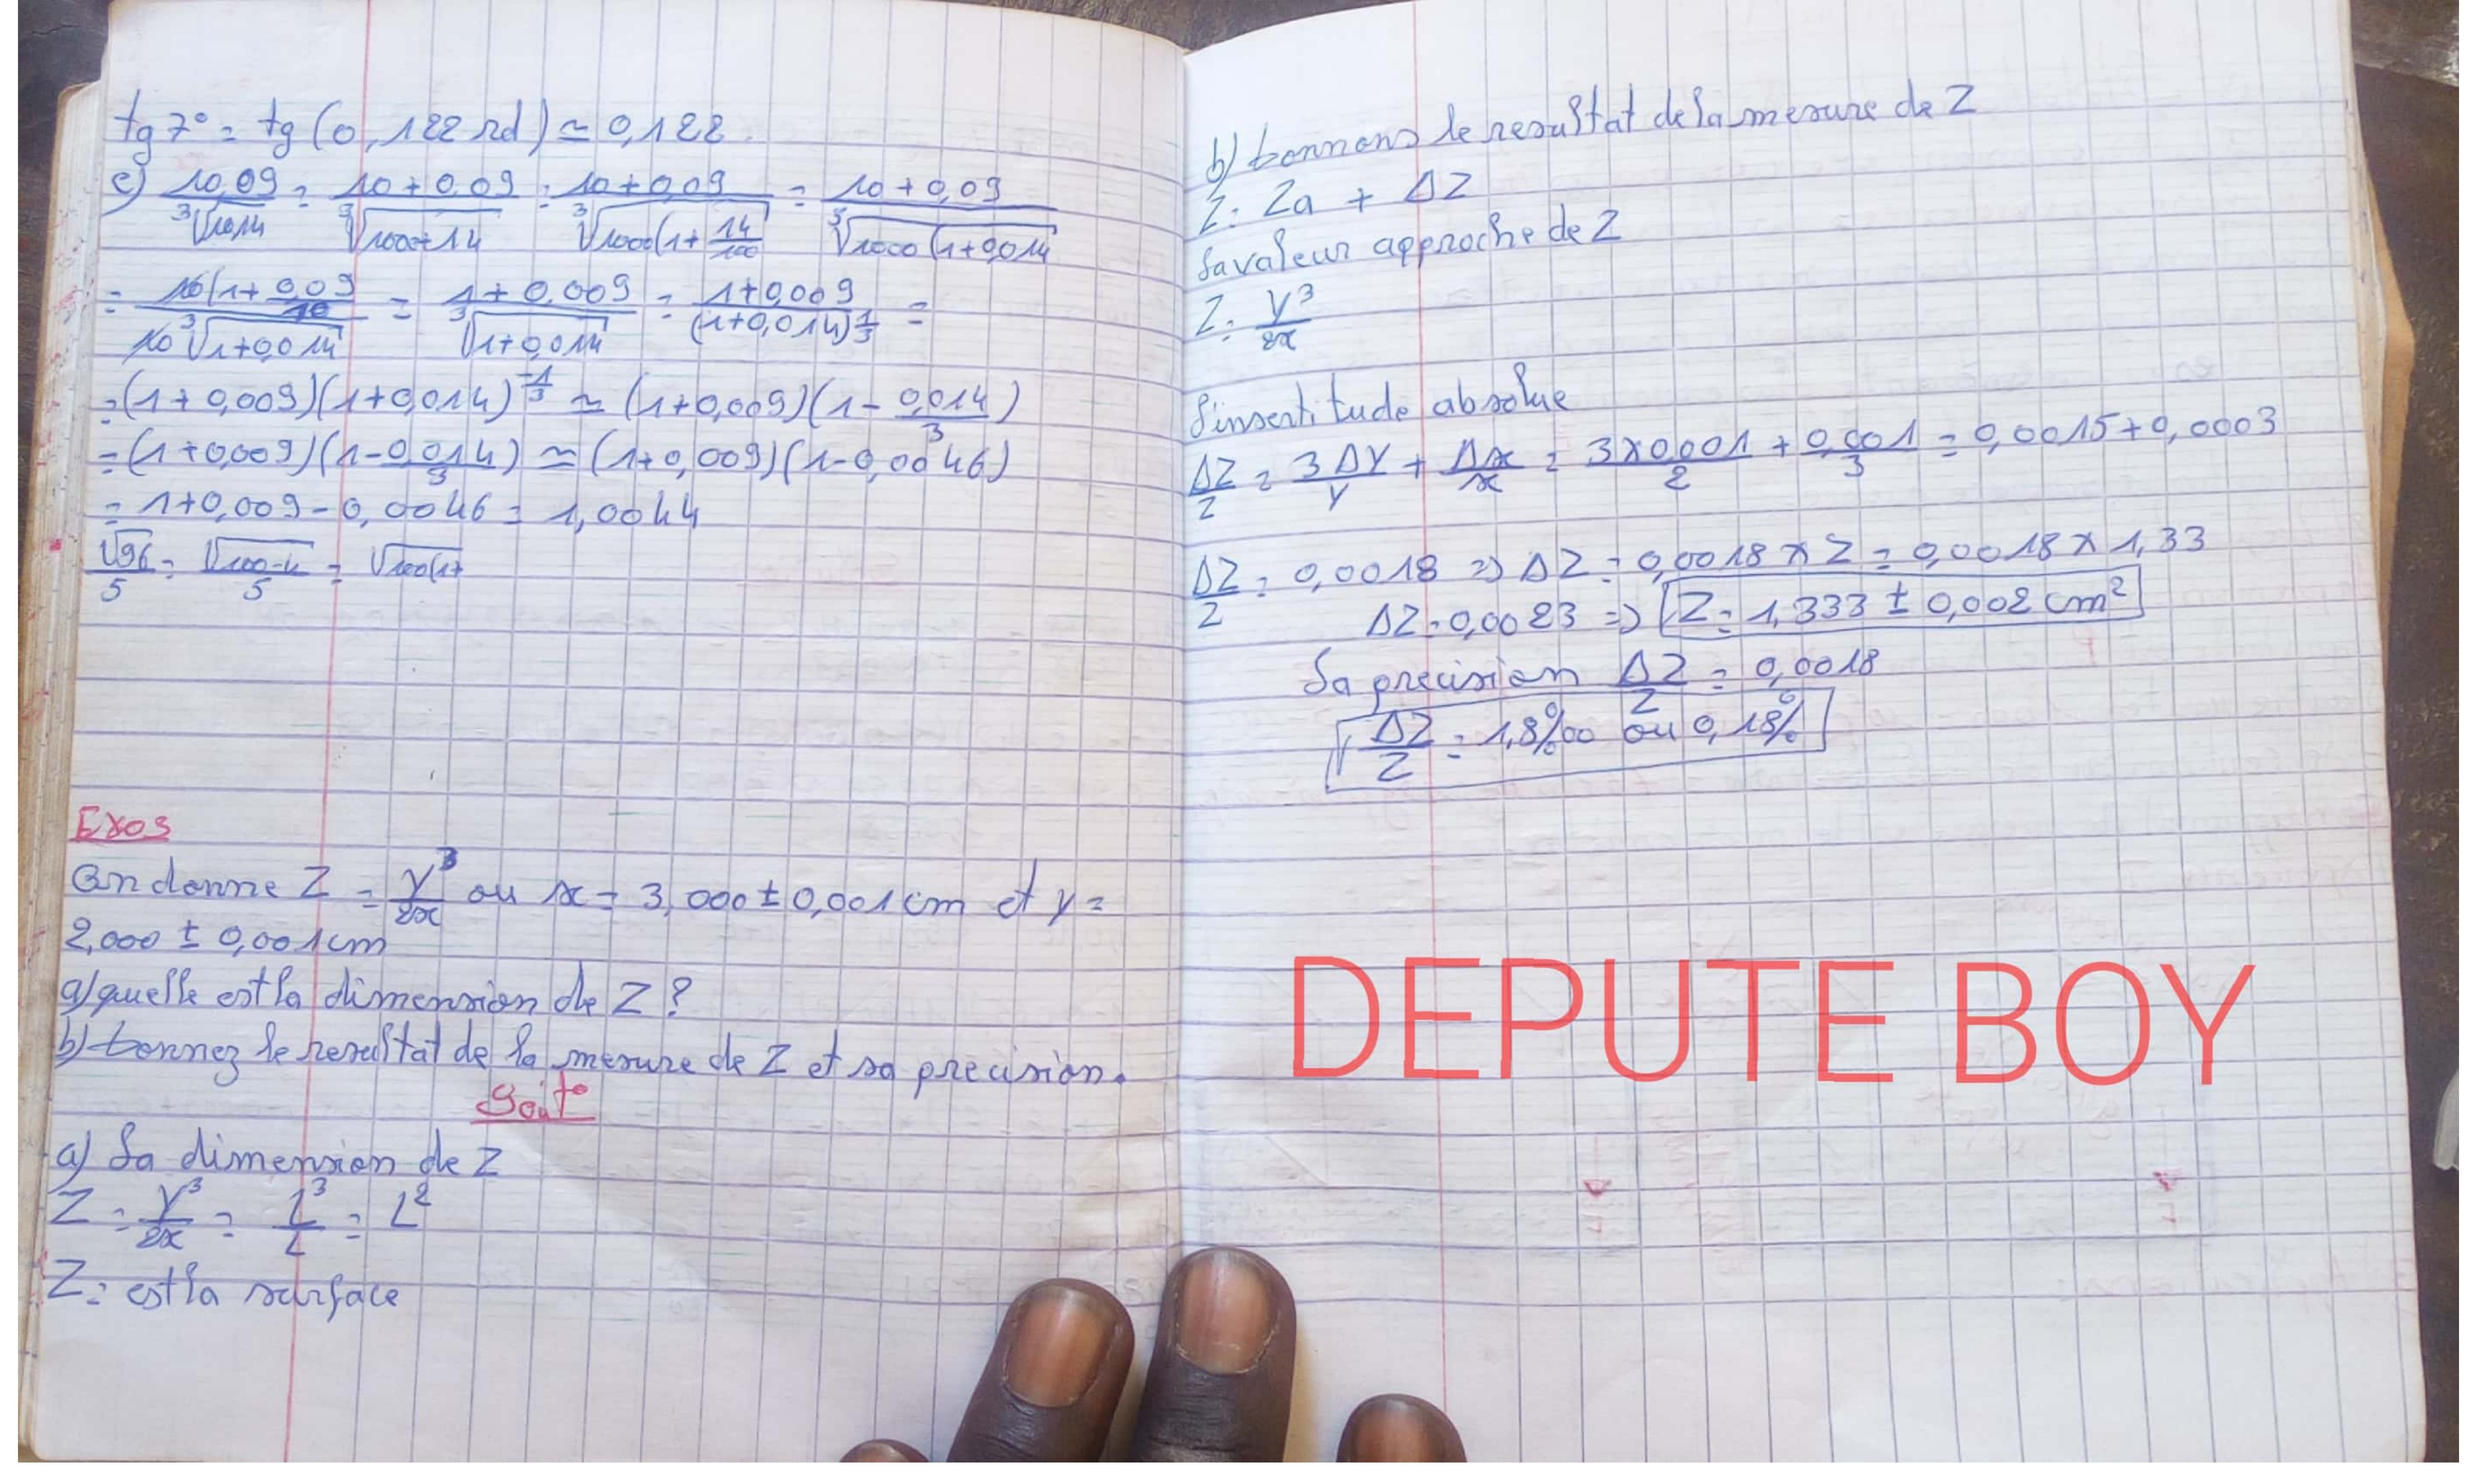 tg 7° = tg (0,122 rd) ≃ 0,122.
c) 10,09/∛1014 = 10 + 0,09/∛1000+14 = 10 + 0,09/∛1000(1+14/100 = 10 + 0,09/∛1000(1+0,014
= 10(1+0,09/10/10∛1+0,014 = 1 + 0,009/∛1+0,014 = 1+0,009/(1+0,014)1/3 =
= (1 + 0,009)(1+0,014)-1/3 ≃ (1+0,009)(1 - 0,014/3)
= (1 + 0,009)(1 - 0,014/3) ≃ (1+0,009)(1-0,0046)
= 1+0,009 - 0,0046 = 1,0044
√96/5 = √100-4/5 = √100(1+
Exos
On donne Z = y³/2x ou x = 3,000 ± 0,001cm et y =
2,000 ± 0,001cm
a) quelle est la dimension de Z ?
b) Donnez le resultat de la mesure de Z et sa precision.
a) La dimension de Z
Z = y³/2x = L³/L = L²
Z = est la surface
b) Donnons le resultat de la mesure de Z
Z = Za + ΔZ
la valeur approche de Z
Z = y³/2x
l'insertitude absolue
ΔZ/Z = 3Δy/y + Δx/x = 3x0,001/2 + 0,001/3 = 0,0015+0,0003
ΔZ/Z = 0,0018 => ΔZ = 0,0018 x Z = 0,0018 x 1,33
ΔZ = 0,0023 => Z = 1,333 ± 0,002 cm²
La precision ΔZ/Z = 0,0018
ΔZ/Z = 1,8%00 ou 0,18%
DEPUTE BOY